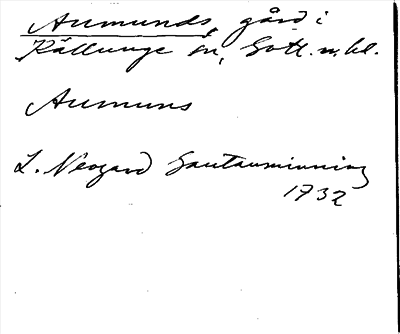 Aumunds, gård i
Källunge sn, Gotl. n. hd.
Aumuns
L. Neogard Gautauminning
1732